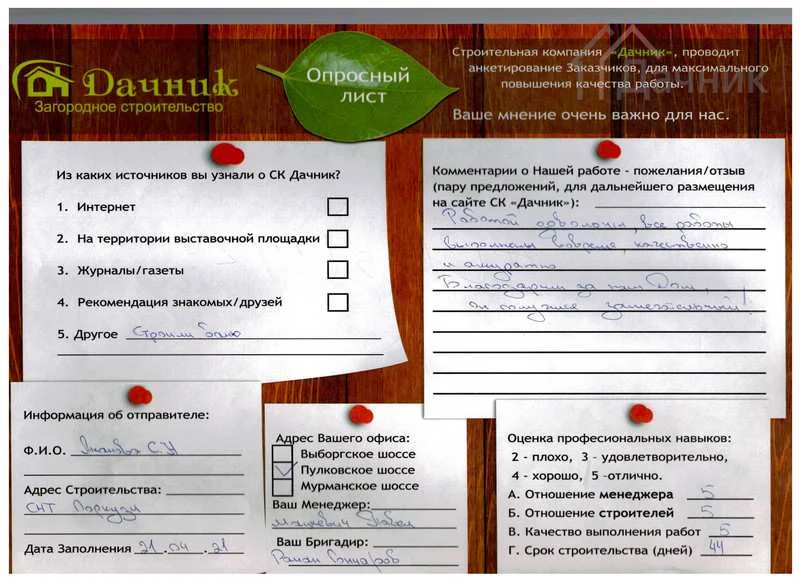 Дачник
Загородное строительство
Опросный
лист
Строительная компания «Дачник», проводит
анкетирование Заказчиков, для максимального
повышения качества работы.
Ваше мнение очень важно для нас.
Дачник
Из каких источников вы узнали о СК Дачник?
1. Интернет
2. На территории выставочной площадки
3. Журналы/газеты
4. Рекомендация знакомых/друзей
5. Другое Строили баню
Комментарии о Нашей работе - пожелания/отзыв
(пару предложений, для дальнейшего размещения
на сайте СК «Дачник»):
Работой довольны, все работы
выполнены вовремя, качественно
и аккуратно
Благодарим за наш Дом,
он получился замечательный!
Информация об отправителе:
Ф.И.О. С.У
Адрес Строительства:
СНТ
Дата Заполнения 21.04.21
Адрес Вашего офиса:
Выборгское шоссе
Пулковское шоссе
Мурманское шоссе
Ваш Менеджер:
Павел
Ваш Бригадир:
Роман Гончаров
Оценка профессиональных навыков:
2 - плохо, 3 - удовлетворительно,
4 - хорошо, 5 -отлично.
А. Отношение менеджера 5
Б. Отношение строителей 5
В. Качество выполнения работ 5
Г. Срок строительства (дней) 44